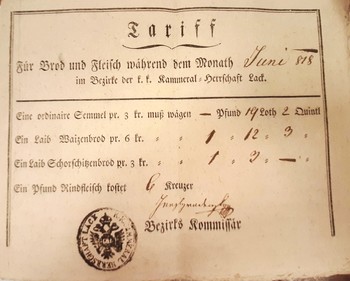 Tariff
Für Brod und Fleisch während dem Monath Juni 818
im Bezirke der k. k. Kammeral-Herrschaft Lack.
Eine ordinaire Semmel pr. 3 kr. muß wägen — Pfund 19 Loth 2 Quintl
Ein Laib Waizenbrod pr. 6 kr. „ „ 1 „ 12 „ 3 „
Ein Laib Schorschitzenbrod pr. 3 kr. „ 1 „ 3 „ — „
Ein Pfund Rindfleisch kostet 6 Kreuzer
Bezirks Kommissär